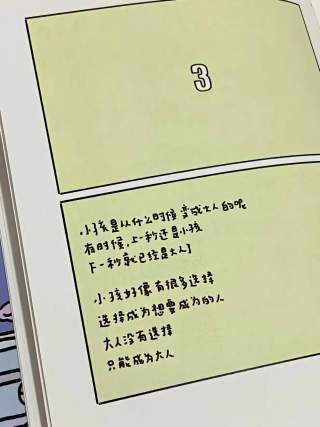 3
小孩是从什么时候变成大人的呢
有时候，上一秒还是小孩
下一秒就已经是大人了
小孩好像有很多选择
选择成为想要成为的人
大人没有选择
只能成为大人